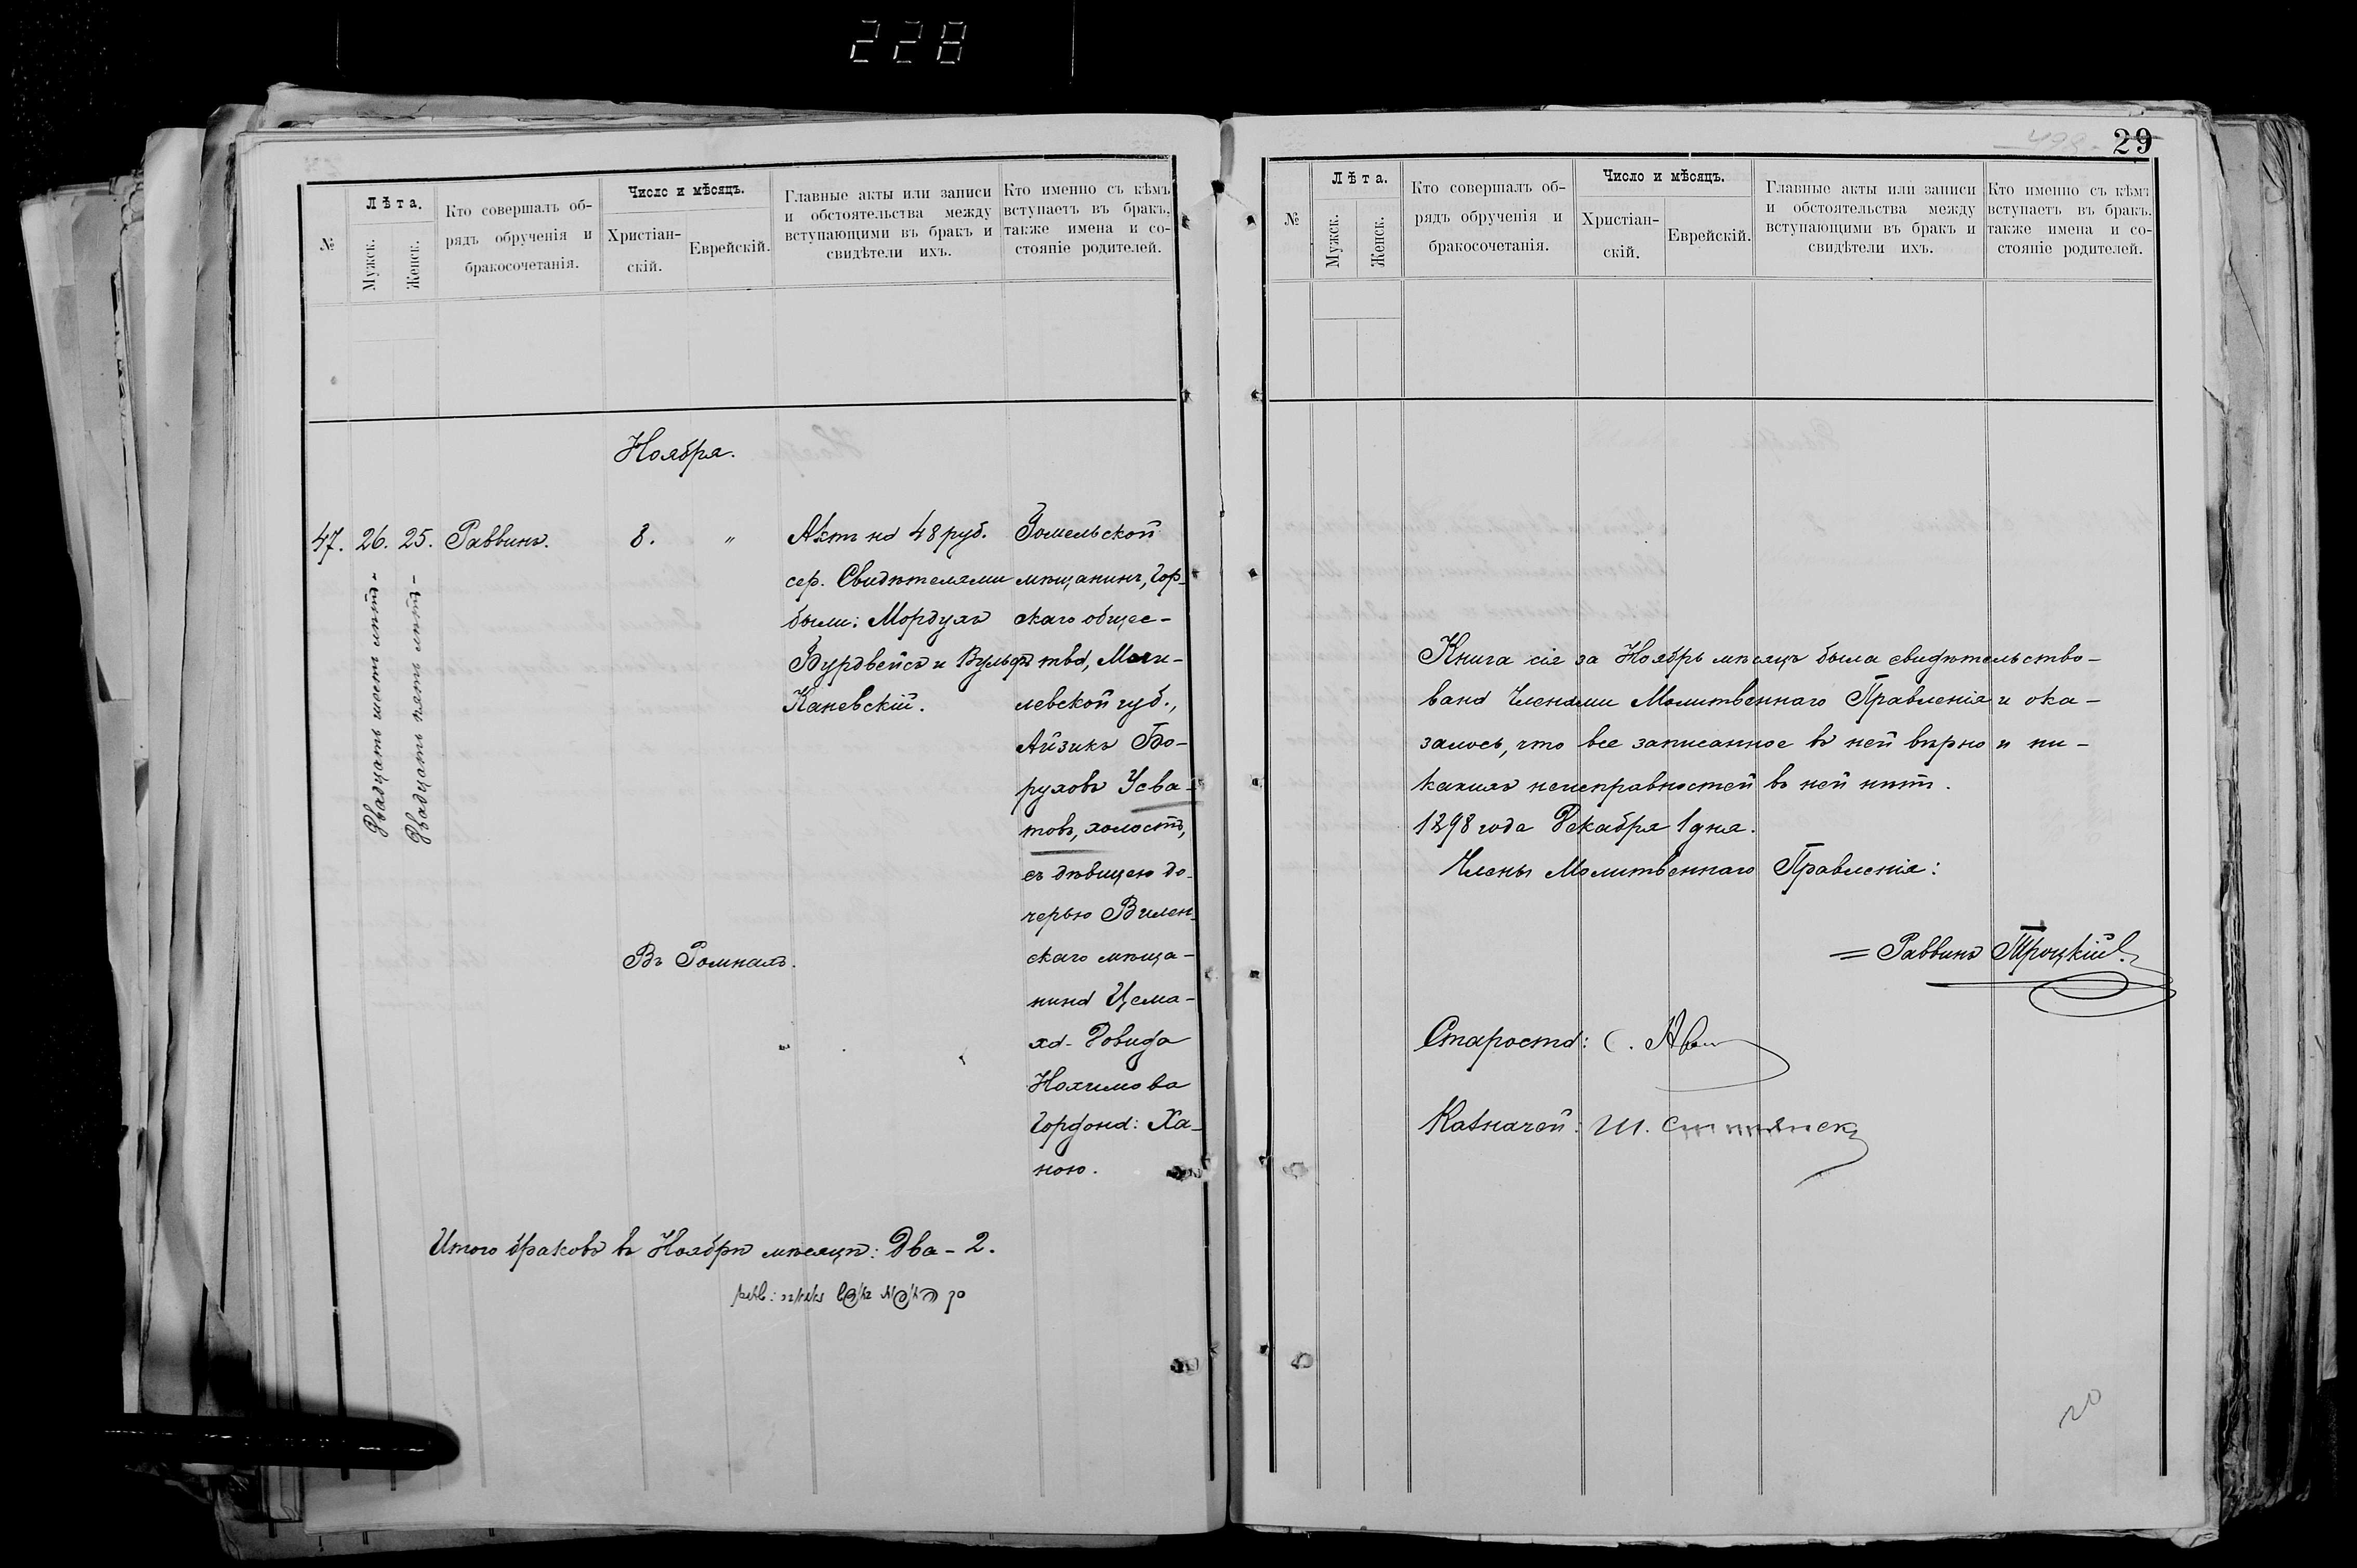 228
№
Лѣта.
Мужск.
Женск.
Кто совершалъ об-
рядъ обрученія и
бракосочетанія.
Число и мѣсяцъ.
Христіан-
скій.
Еврейскій.
Главные акты или записи
и обстоятельства между
вступающими въ бракъ и
свидѣтели ихъ.
Кто именно съ кѣмъ
вступаетъ въ бракъ,
также имена и со-
стояніе родителей.
Ноября.
47. 26. 25. Раввинъ. 8. "
Двадцать шесть лѣтъ-
Двадцать пять лѣтъ-
Актъ на 48 руб.
сер. Свидѣтелями
были: Мордухъ
и Вульфъ
Каневскій.
Гомельской
мѣщанинъ, Гор-
скаго общес-
тва, Моги-
левской губ.,
Айзикъ Бо-
руховъ Усва-
товъ, холостъ,
съ дѣвицею до-
черью Вилен-
скаго мѣща-
нина Цема-
ха-Довида
Нохимова
Гордона: Ха-
ною.
Въ Ромнахъ.
Итого браковъ въ Ноябрѣ мѣсяцѣ: Два-2.
29
№
Лѣта.
Мужск.
Женск.
Кто совершалъ об-
рядъ обрученія и
бракосочетанія.
Число и мѣсяцъ.
Христіан-
скій.
Еврейскій.
Главные акты или записи
и обстоятельства между
вступающими въ бракъ и
свидѣтели ихъ.
Кто именно съ кѣмъ
вступаетъ въ бракъ.
также имена и со-
стояніе родителей.
Книга сія за Ноябрь мѣсяцъ была свидѣтельство-
вана Членами Молитвеннаго Правленія и ока-
залось, что все записанное въ ней вѣрно и ни-
какихъ неисправностей въ ней нѣтъ.
1898 года Декабря 1 дня.
Члены Молитвеннаго Правленія:
= Раввинъ Троцкій
Староста:
Казначей: Ш.
20